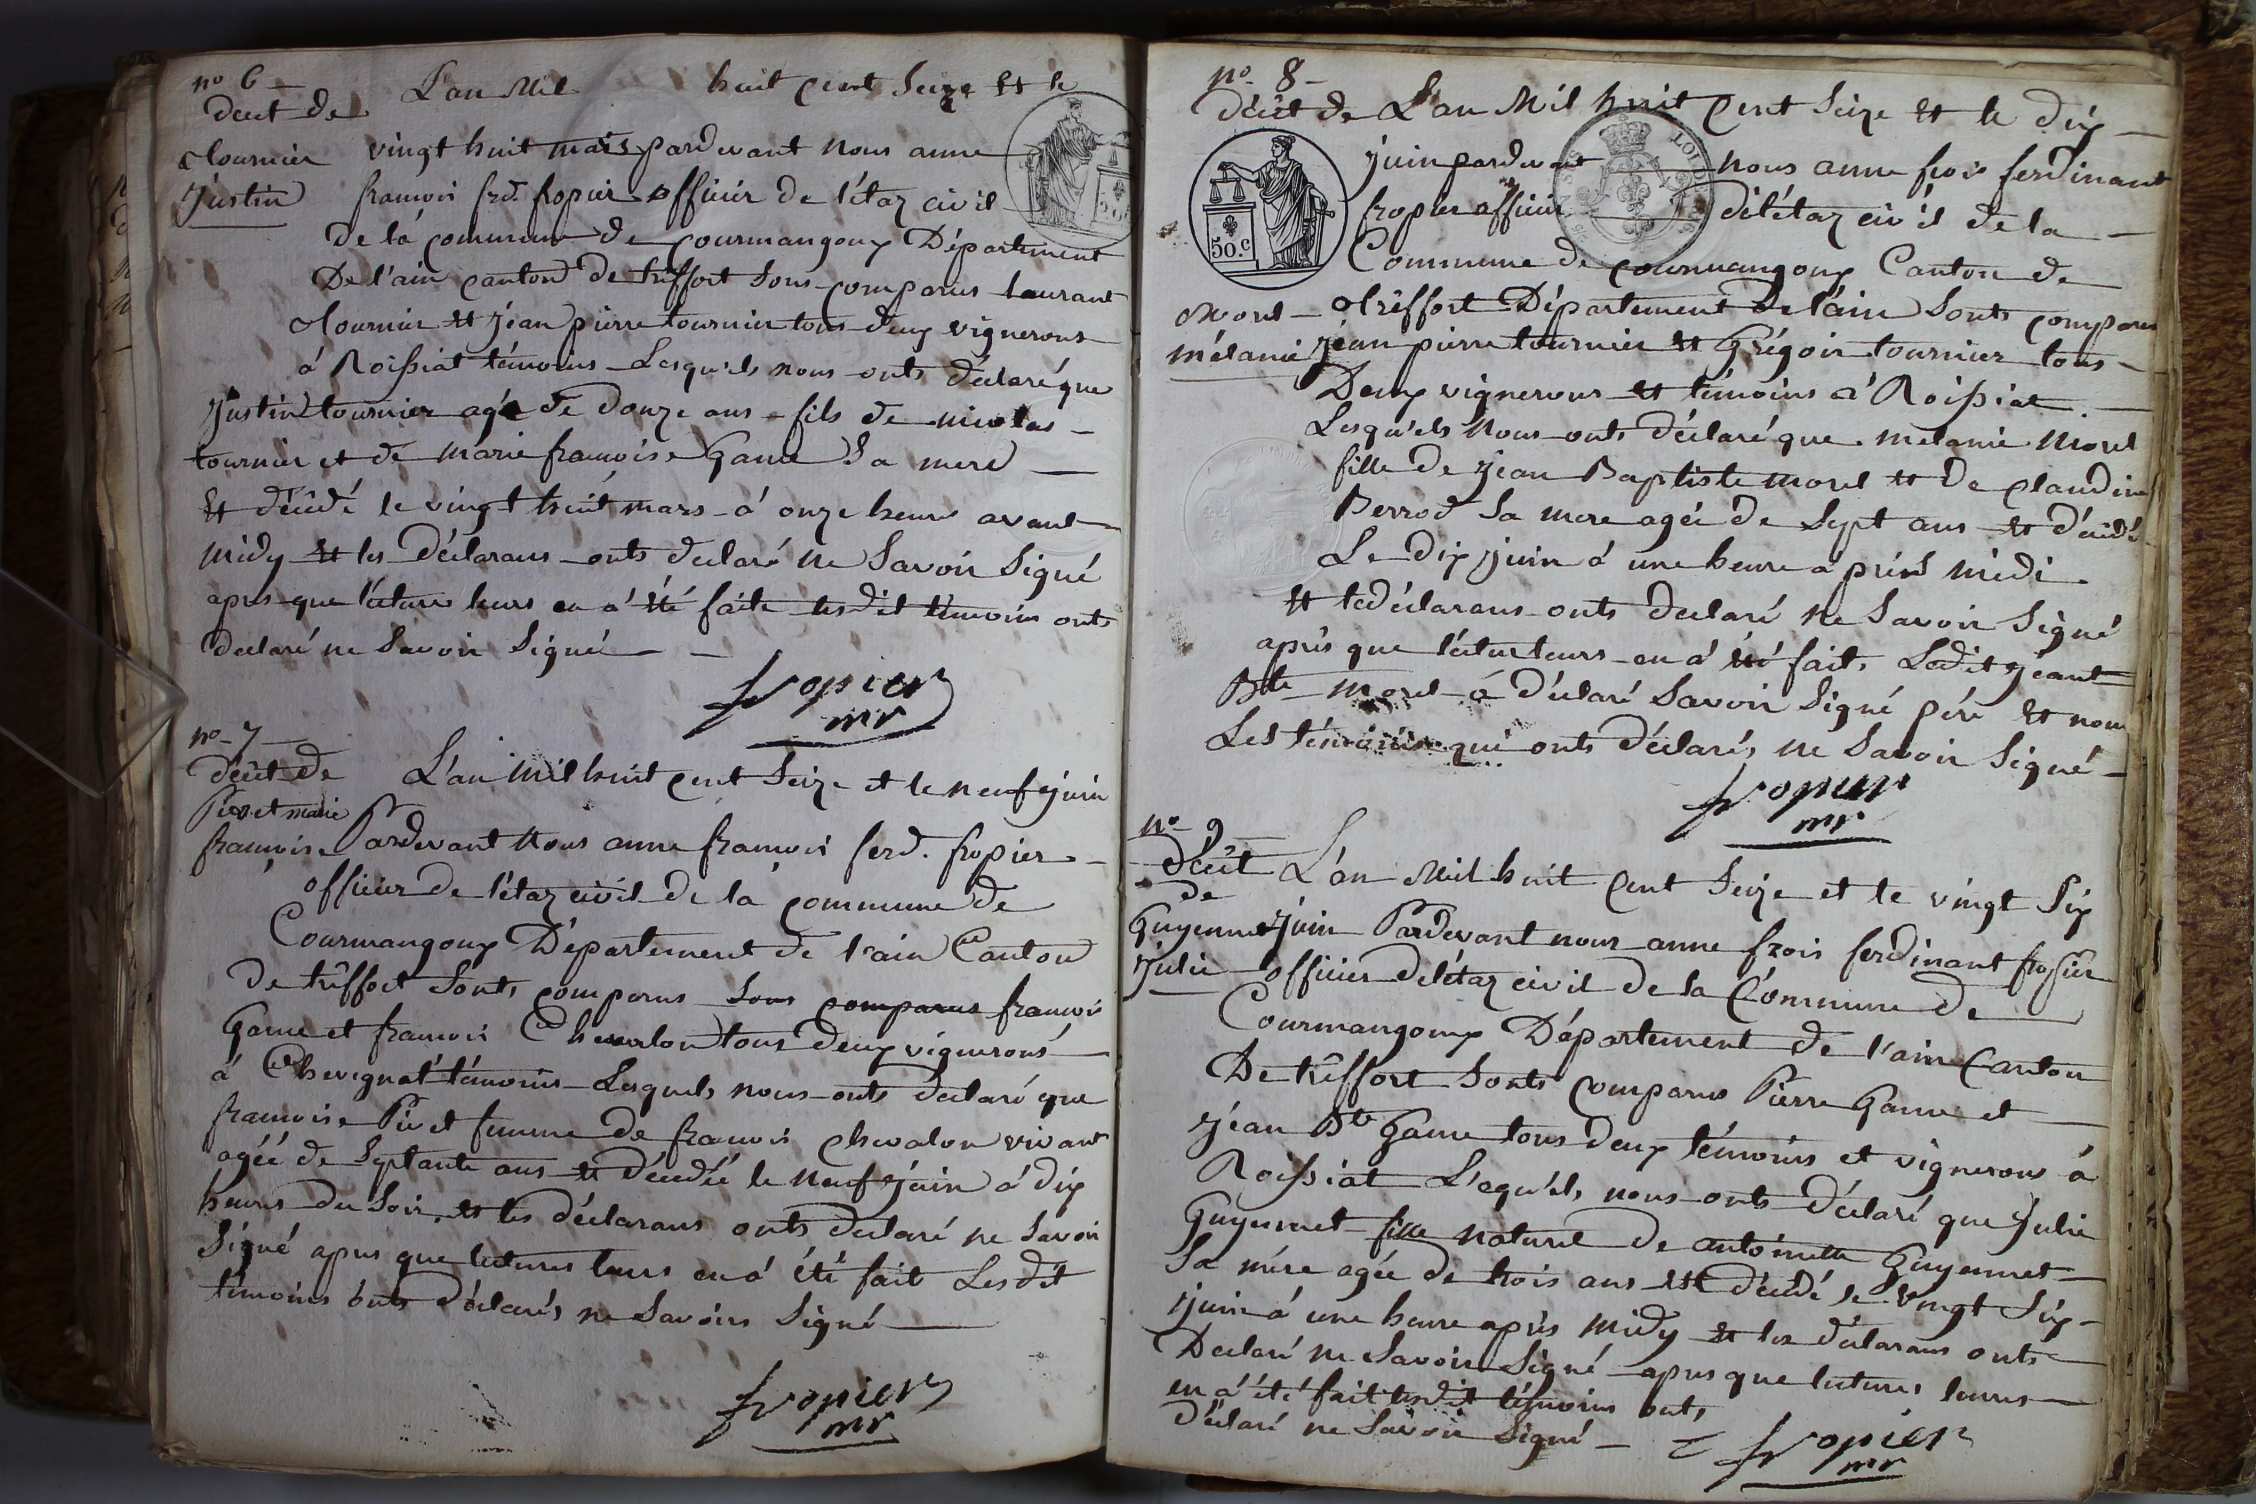 n° 6
L'an Mil huit cent Seize et le
deut de
tournier
Justin
vingt huit mars pardevant nous anne
francois frd. fropier officier de l'étaz civil
de la commune de Courmangoux Département
De l'ain canton de treffort Sons comparus laurant
tournier et jean pierre tournier tous deux vignerons
à Roissiat témoins Lesquels nous onts déclaré que
Justin tournier agé de douze ans fils de nicolas
tournier et de marie francoise Game Sa mere
Et décédé le vingt huit mars à onze heure avant
midy et les déclarans onts declaré ne Savoir Signé
apres que lecture leurs en a été faite lesdit témoins onts
declaré ne Savoir Signé
fropier
mr
n° 7
décit de
Pivet marie
francoise
L'an mil huit cent Seize et le neuf juin
Pardevant Nous anne francois ferd. fropier
officier de l'étaz civil de la commune de
Courmangoux Département de l'ain Canton
De treffort Sonts comparus Sons comparus francois
Game et francois Chevalon tous deux vignerons
à Chevignat témoins Lesquels nous onts déclaré que
francoise Pivet femme de francois Chevalon vivant
agée de Septante ans et décedée le neuf juin à dix
heures du Soir et les déclarans onts declaré ne Savoir
Signé apres que lectures leurs en a été fait Lesdit
témoins onts déclarés ne Savoirs Signé
fropier
mr
n° 8
décit de
L'an Mil huit Cent Seize et le dix
50.C
juin pardevant nous anne frois ferdinant
fropier officier de l'étaz civil de la
Commune de Courmangoux Canton de
Morel
mélanie
treffort Département de l'ain Sonts comparus
jean pierre tournier et Grégoir tournier tous
Deux vignerons et témoins à Roissiat
Lesquels Nous onts déclaré que melanie Morel
fille de jean Baptiste morel et De Claudine
Berrod Sa mere agée de Sept ans et décédé
Le dix juin à une heure aprés midi
et le déclarans onts declaré ne Savoir Signé
après que lecture leurs en a été fait, Ledit jeant
Bte morel a déclaré Savoir Signé pére et nom
Les témoins qui onts déclarés ne Savoir Signé
fropier
mr
n° 9
décit
de
Guyennet
Julie
L'an Mil huit Cent Seize et le vingt Six
juin Pardevant nous anne frois ferdinant fropier
officier de létaz civil de la Commune de
Courmangoux Département de l'ain Canton
De treffort Sonts comparus Pierre Game et
jéan Bte Game tous deux témoins et vignerons à
Roissiat L'equels nous onts déclaré que Julie
Guyennet fille naturel de antoinette Guyennet
Sa mére agée de trois ans est décédé le vingt Six
juin à une heure après midy et les déclarans onts
Declaré ne Savoir Signé apres que lectures leurs
en a été fait lesdit témoins onts
déclaré ne Savoir Signé
fropier
mr